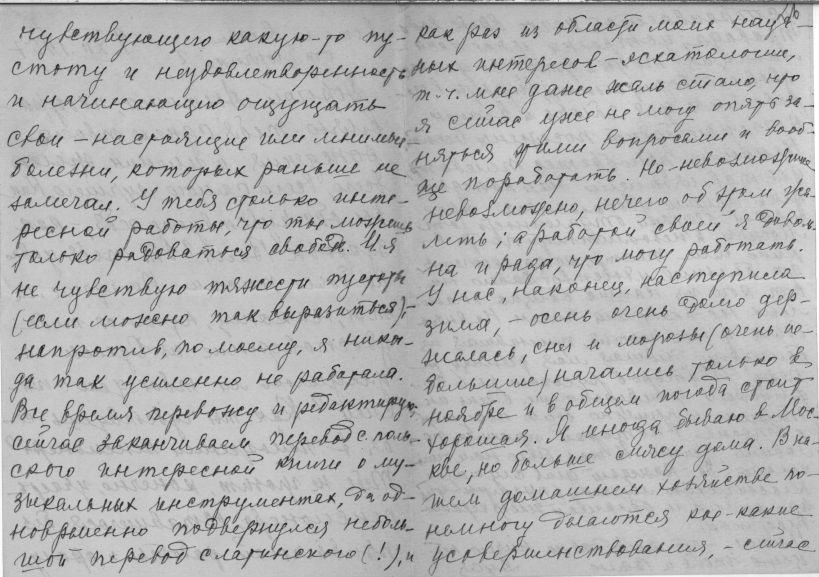 чувствующего какую-то пу-
стоту и неудовлетворенность
и начинающего ощущать
свои – настоящие или мнимые
болезни, которых раньше не
замечал. У тебя столько инте-
ресной работы, что ты можешь
только радоваться свободе. И я
не чувствую тяжести пустоты
(если можно так выразиться), –
напротив, по моему, я никог-
да так усиленно не работала.
Все время перевожу и редактирую,
сейчас заканчиваем перевод с поль-
ского интересной книги о му-
зыкальных инструментах, да од-
новременно подвернулся неболь-
шой перевод с латинского (!), и
как раз из области моих науч-
ных интересов – эсхатологии,
т.ч. мне даже жаль стало, что
я сейчас уже не могу опять за-
няться этими вопросами и вооб-
ще поработать. Но – невозможное
невозможно, нечего об этом жа-
леть; а работой своей я доволь-
на и рада, что могу работать.
У нас, наконец, наступила
зима, – осень очень долго дер-
жалась, снег и морозы (очень не-
большие) начались только в
ноябре и в общем погода стоит
хорошая. Я иногда бываю в Мос-
кве, но больше сижу дома. В на-
шем домашнем хозяйстве по-
немногу делаются кое-какие
усовершенствования, – сейчас